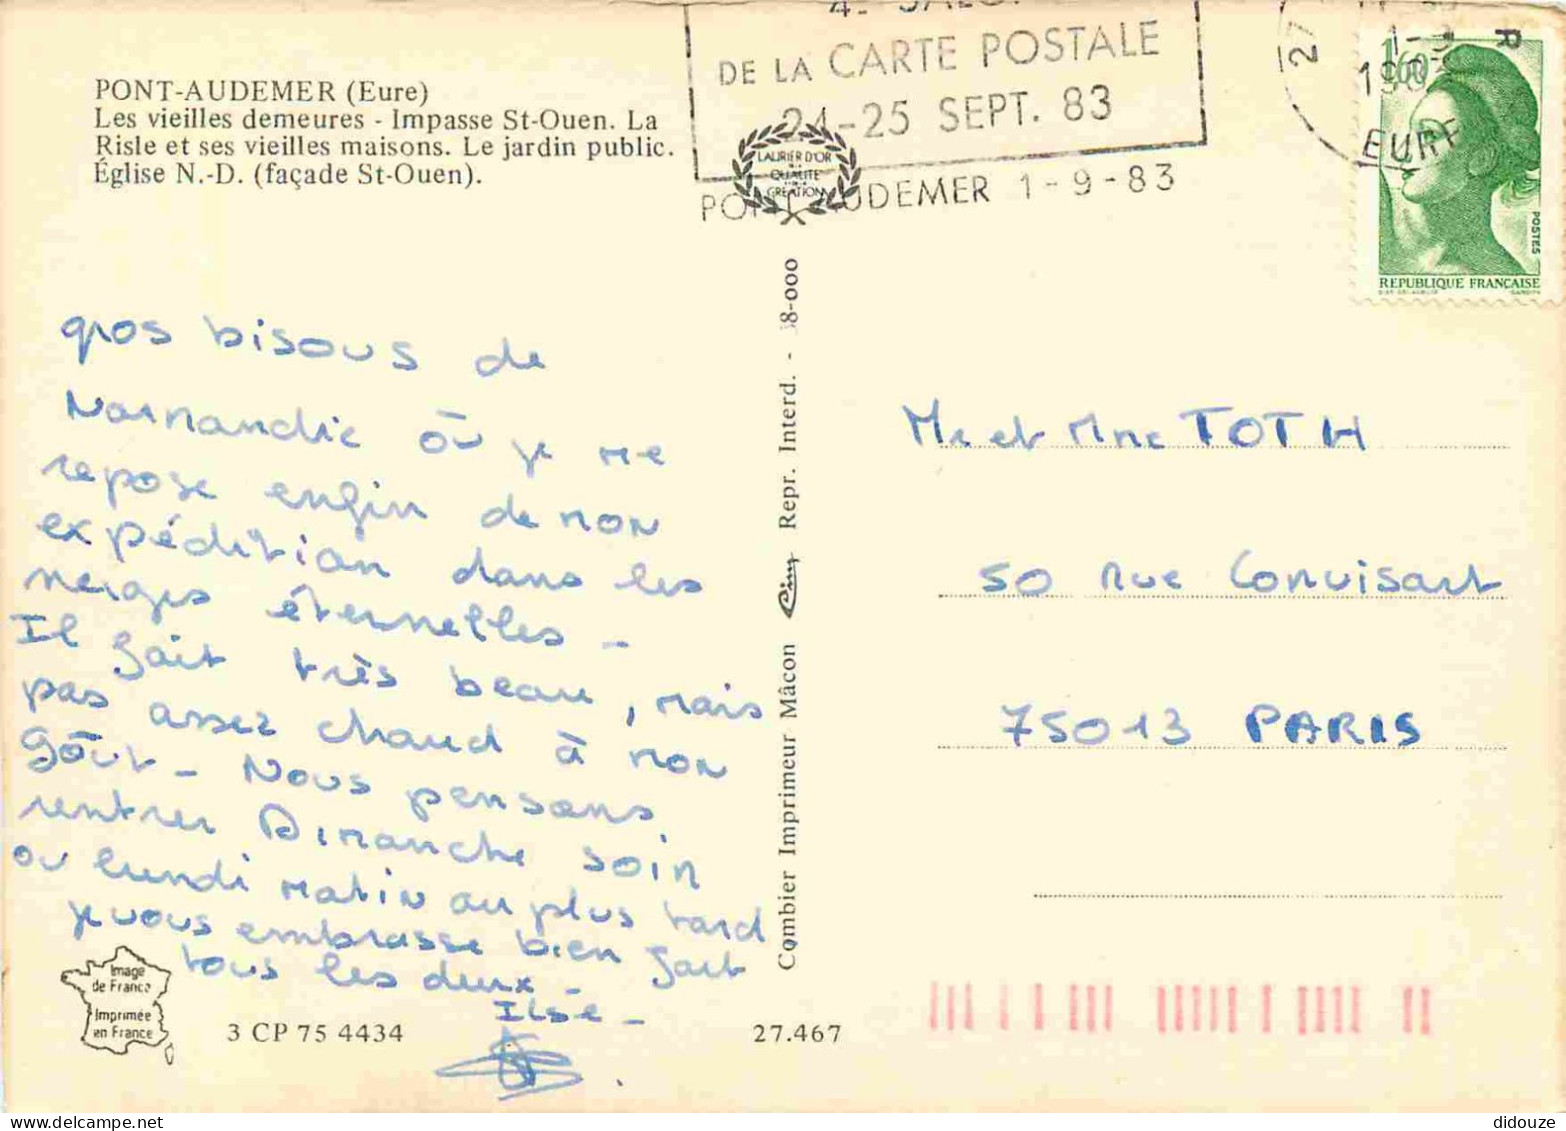 PONT-AUDEMER (Eure)
Les vieilles demeures - Impasse St-Ouen. La
Risle et ses vieilles maisons. Le jardin public.
Église N.-D. (façade St-Ouen).
DE LA CARTE POSTALE
24-25 SEPT. 83
PONT AUDEMER 1-9-83
LAURIER D'OR
QUALITÉ
CRÉATION
27
EURE
1,60
POSTES
REPUBLIQUE FRANÇAISE
gros bisous de
Normandie où je me
repose enfin de mon
expédition dans les
neiges éternelles -
Il fait très beau, mais
pas assez chaud à mon
gôut - Nous pensons
rentrer Dimanche soir
ou lundi matin au plus tard
je vous embrasse bien fort
tous les deux -
Ilse -
Mr et Mme TOTH
50 rue Corvisart
75013 PARIS
Combier Imprimeur Mâcon Cim Repr. Interd. - 38-000
Image
de France
Imprimée
en France
3 CP 75 4434
27.467
didouze